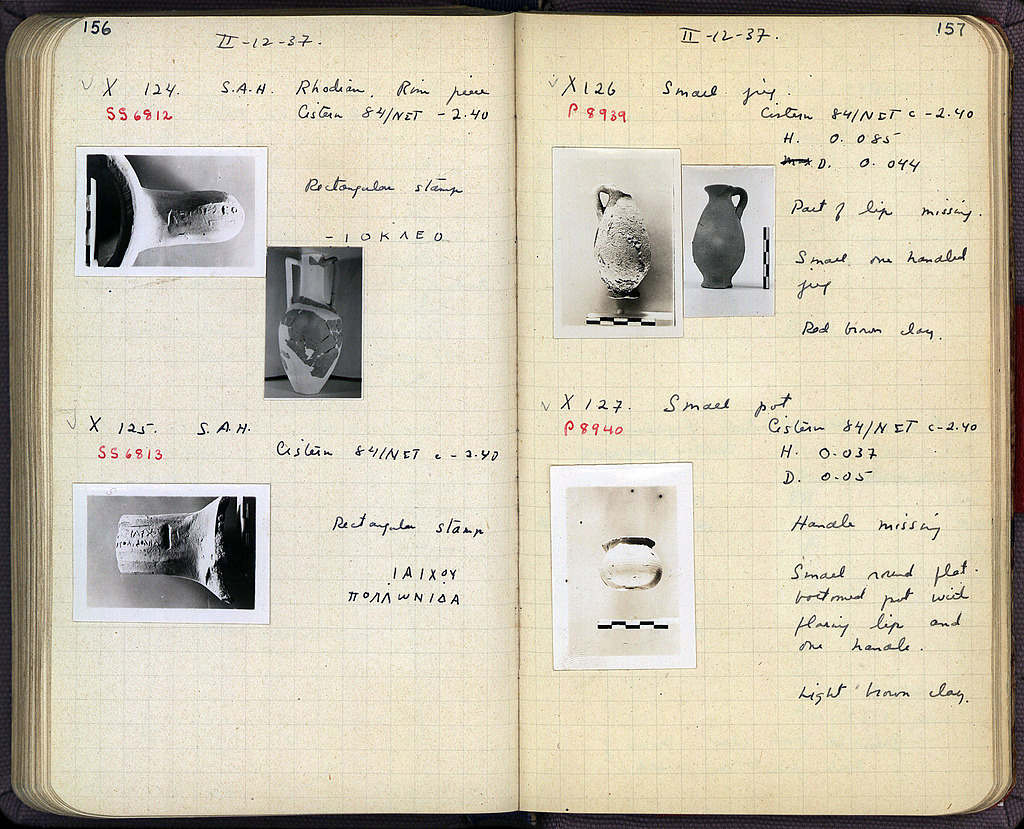 156
II-12-37.
X 124. S.A.H. Rhodian. Rim piece
SS 6812
Cistern 84/NET -2.40
Rectangular stamp
-ΙΟΚΛΕΟ
X 125. S.A.H.
SS 6813
Cistern 84/NET c -2.40
Rectangular stamp
ΙΑΙΧΟΥ
ΠΟΛΛΩΝΙΔΑ
157
II-12-37.
X 126 Small jug.
P 8939
Cistern 84/NET c -2.40
H. 0.085
D. 0.044
Part of lip missing.
Small one handled
jug
Red brown clay.
X 127. Small pot
P 8940
Cistern 84/NET c -2.40
H. 0.037
D. 0.05
Handle missing
Small round flat-
bottomed pot with
flaring lip and
one handle.
Light brown clay.